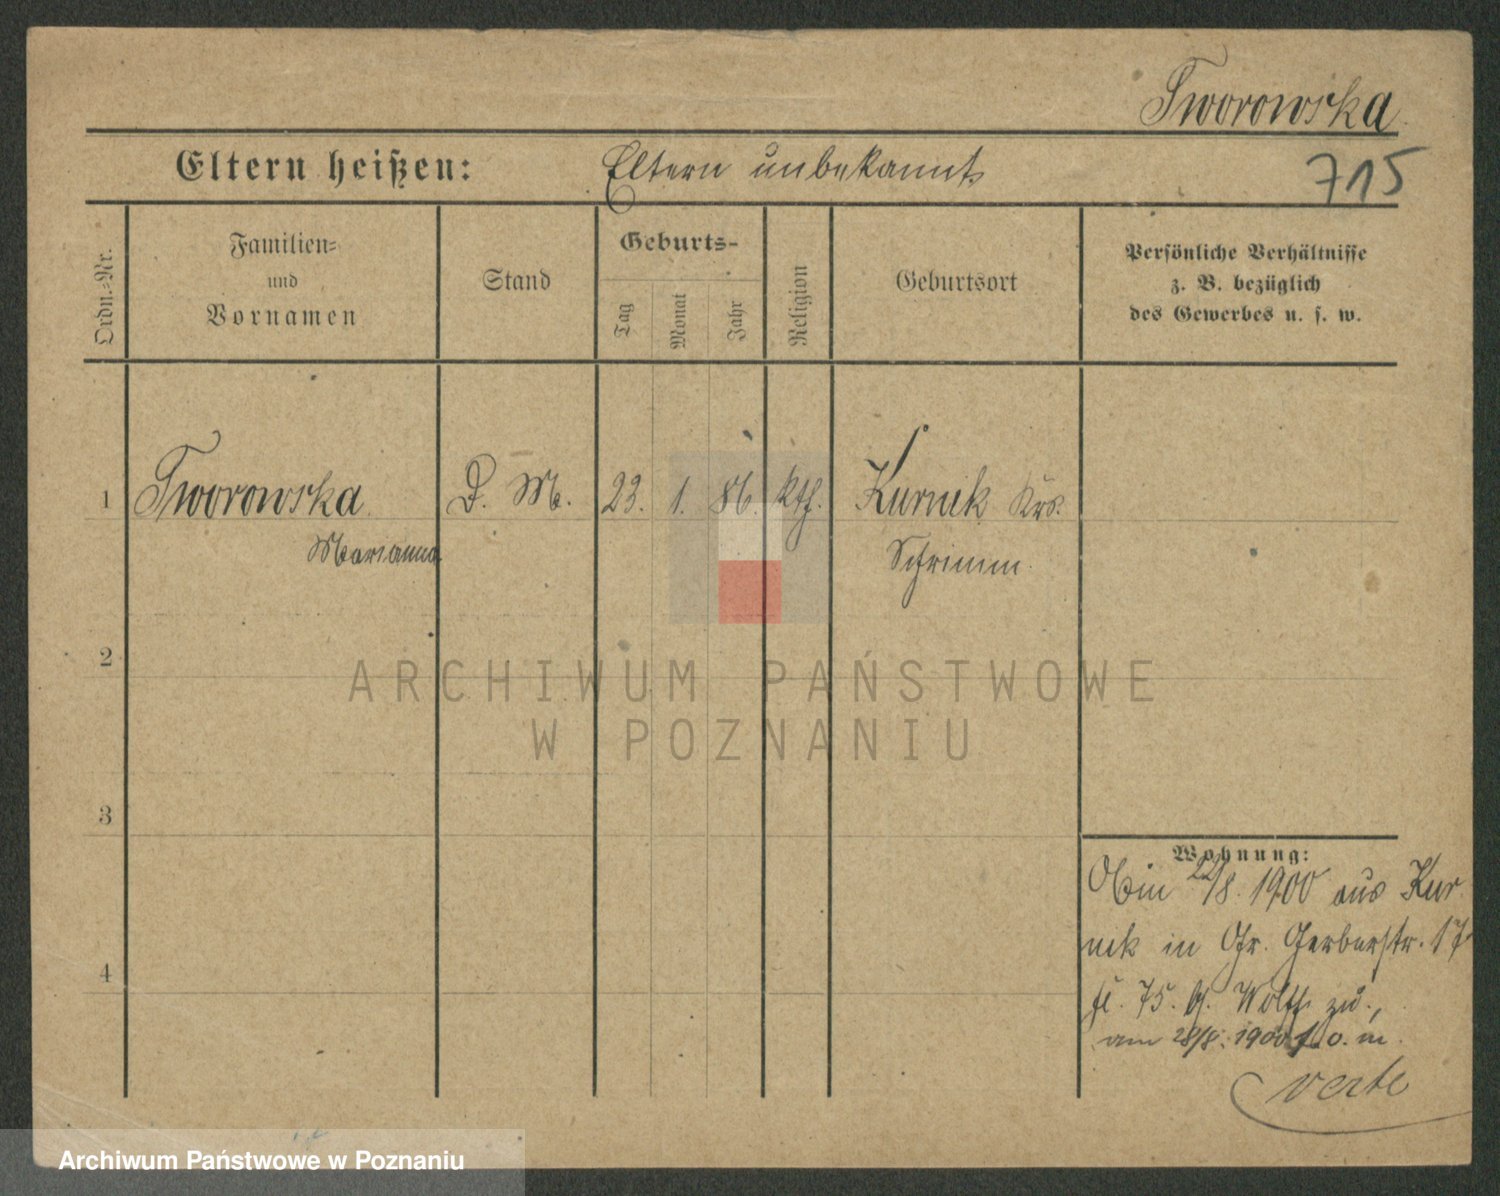 Tworowska
Eltern heißen: Eltern unbekannt
715
Ordn.-Nr.
Familien-
und
Vornamen
Stand
Geburts-
Tag
Monat
Jahr
Religion
Geburtsort
Persönliche Verhältnisse
z. B. bezüglich
des Gewerbes u. s. w.
1 Tworowska D. M. 23. 1. 86. kth. Kurnik Krs.
Marianna Schrimm
2
3
4
Wohnung:
22/8. 1900 aus Kur
nik in Gr. Gerberstr. 17
75. zu,
am 28/8. 1900
verte
ARCHIWUM PAŃSTWOWE
W POZNANIU
Archiwum Państwowe w Poznaniu